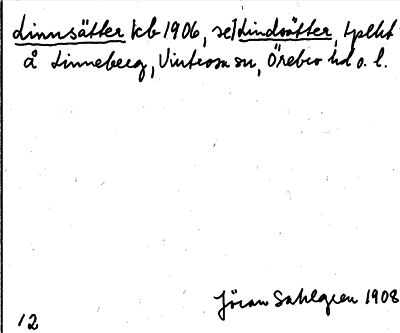 Linnsätter kb 1906, se] Lindsätter, tplht
å Linneberg, Vintrosa sn, Örebro hd o. l.
Jöran Sahlgren 1908
12